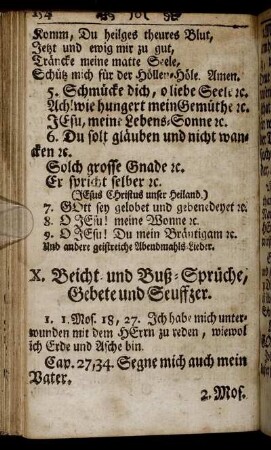 154 )o(
Komm, Du heilges theures Blut,
Jetzt und ewig mir zu gut,
Träncke meine matte Seele,
Schütz mich für der Höllen-Höle. Amen.
5. Schmücke dich, o liebe Seele ꝛc.
Ach! wie hungert mein Gemüthe ꝛc.
JEsu, meine Lebens-Sonne ꝛc.
6. Du solt gläuben und nicht wan-
cken ꝛc.
Solch grosse Gnade ꝛc.
Er spricht selber ꝛc.
(JEsus Christus unser Heiland.)
7. GOtt sey gelobet und gebenedeyet ꝛc.
8. O JEsu! meine Wonne ꝛc.
9. O JEsu! Du mein Bräutigam ꝛc.
Und andere geistreiche Abendmahls-Lieder.
X. Beicht- und Buß-Sprüche,
Gebete und Seuffzer.
1. 1. Mos. 18, 27. Ich habe mich unter-
wunden mit dem HErrn zu reden, wiewol
ich Erde und Asche bin.
Cap. 27, 34. Segne mich auch mein
Vater.
2. Mos.